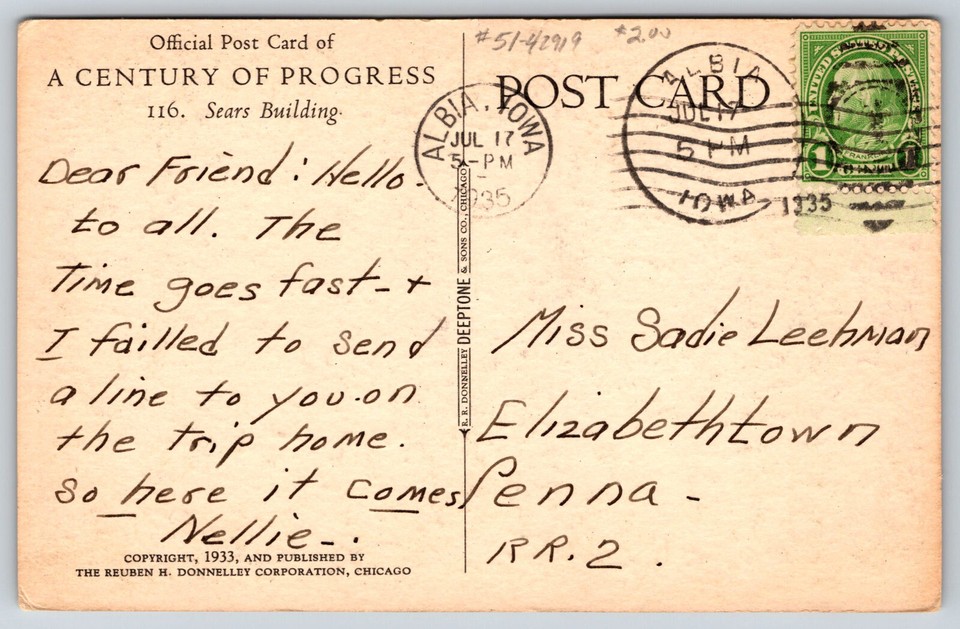 Official Post Card of
A CENTURY OF PROGRESS
116. Sears Building.
Dear Friend: Hello-
to all. The
Time goes fast- +
I failled to send
a line to you-on
the trip home.
So here it comes
Nellie-.
COPYRIGHT, 1933, AND PUBLISHED BY
THE REUBEN H. DONNELLEY CORPORATION, CHICAGO
ALBIA, IOWA
JUL 17
5-PM
1935
R. R. DONNELLEY DEEPTONE & SONS CO., CHICAGO
#51-42919 $2.00
POST CARD
ALBIA
JUL 17
5 PM
IOWA
1935
UNITED STATES POSTAGE
FRANKLIN
1 1
Miss Sadie Leehman
Elizabethtown
Penna-
RR. 2.